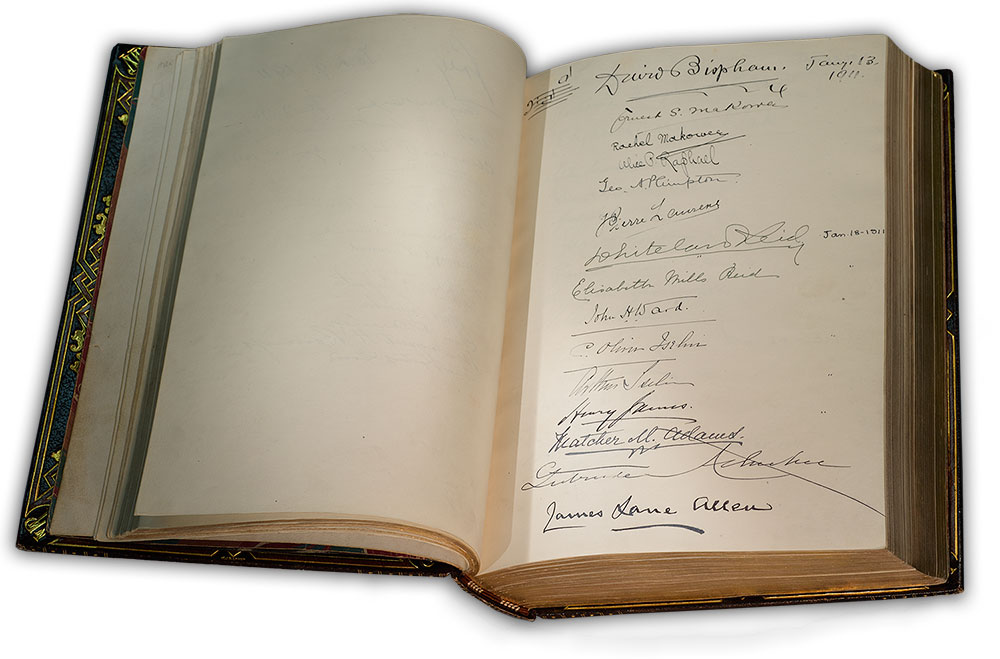 David Bispham. Jany. 13. 1911.
Ernest S. Makower
Rachel Makower
Alice P. Raphael
Geo. A. Plimpton.
Pierre Laurens
Whitelaw Reid Jan. 18-1911
Elisabeth Mills Reid "
John H Ward.
C. Oliver Iselin
Arthur Iselin "
Henry James. "
Thatcher M. Adams.
James Lane Allen